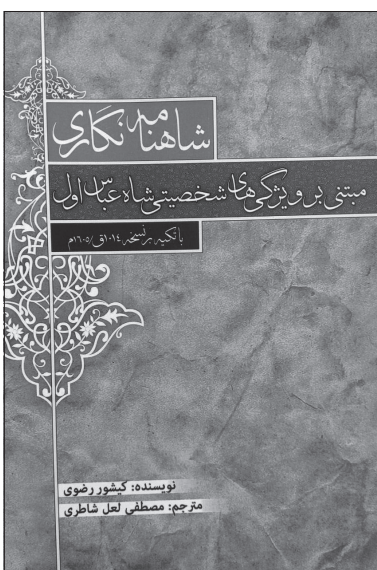 شاهنامه نگاری
مبتنی بر ویژگی‌های شخصیتی شاه عباس اول
با تکیه بر نسخه ۱۰۱٤ق/۱٦۰۵م
نویسنده: کیشور رضوی
مترجم: مصطفی لعل شاطری